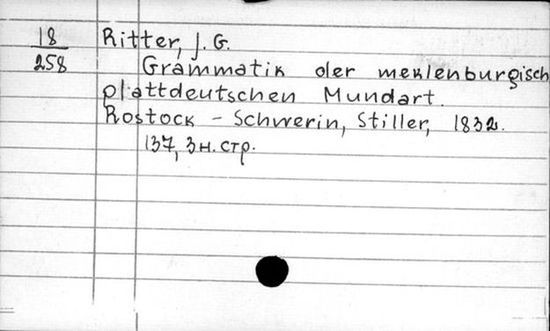 18
258
Ritter, J. G.
Grammatik der meklenburgisch
plattdeutschen Mundart.
Rostock - Schwerin, Stiller, 1832.
137, 3 н. стр.